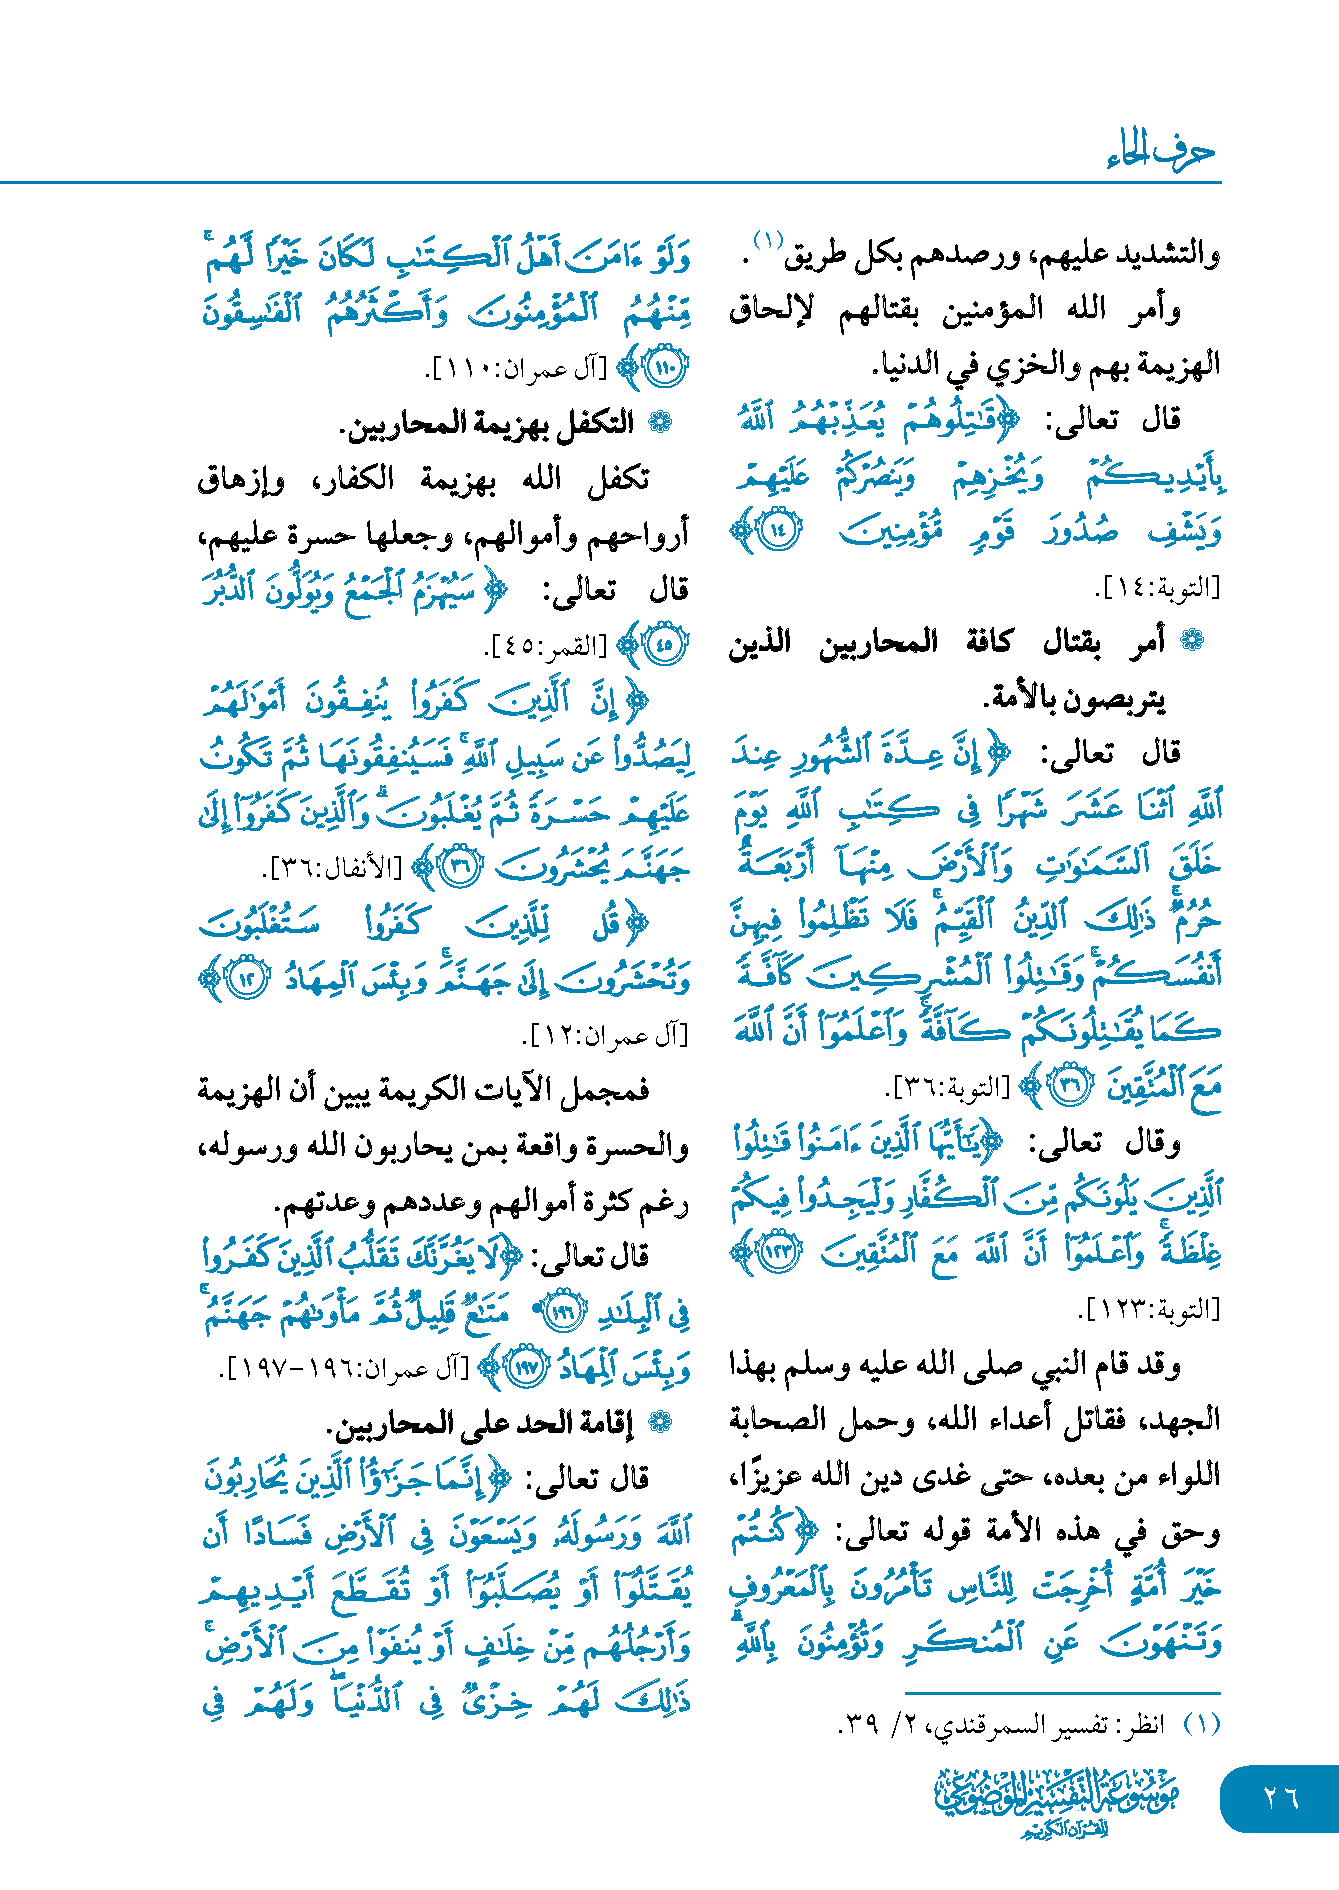 حرف الحاء
والتشديد عليهم، ورصدهم بكل طريق(١).
وأمر الله المؤمنين بقتالهم لإلحاق
الهزيمة بهم والخزي في الدنيا.
قال تعالى: ﴿قَٰتِلُوهُمْ يُعَذِّبْهُمُ ٱللَّهُ
بِأَيْدِيكُمْ وَيُخْزِهِمْ وَيَنصُرْكُمْ عَلَيْهِمْ
وَيَشْفِ صُدُورَ قَوْمٍ مُّؤْمِنِينَ ١٤﴾
[التوبة:١٤].
❁ أمر بقتال كافة المحاربين الذين
يتربصون بالأمة.
قال تعالى: ﴿إِنَّ عِدَّةَ ٱلشُّهُورِ عِندَ
ٱللَّهِ ٱثْنَا عَشَرَ شَهْرًا فِى كِتَٰبِ ٱللَّهِ يَوْمَ
خَلَقَ ٱلسَّمَٰوَٰتِ وَٱلْأَرْضَ مِنْهَآ أَرْبَعَةٌ
حُرُمٌ ۚ ذَٰلِكَ ٱلدِّينُ ٱلْقَيِّمُ ۚ فَلَا تَظْلِمُوا۟ فِيهِنَّ
أَنفُسَكُمْ ۚ وَقَٰتِلُوا۟ ٱلْمُشْرِكِينَ كَآفَّةً
كَمَا يُقَٰتِلُونَكُمْ كَآفَّةً ۚ وَٱعْلَمُوٓا۟ أَنَّ ٱللَّهَ
مَعَ ٱلْمُتَّقِينَ ٣٦﴾ [التوبة:٣٦].
وقال تعالى: ﴿يَٰٓأَيُّهَا ٱلَّذِينَ ءَامَنُوا۟ قَٰتِلُوا۟
ٱلَّذِينَ يَلُونَكُم مِّنَ ٱلْكُفَّارِ وَلْيَجِدُوا۟ فِيكُمْ
غِلْظَةً ۚ وَٱعْلَمُوٓا۟ أَنَّ ٱللَّهَ مَعَ ٱلْمُتَّقِينَ ١٢٣﴾
[التوبة:١٢٣].
وقد قام النبي صلى الله عليه وسلم بهذا
الجهد، فقاتل أعداء الله، وحمل الصحابة
اللواء من بعده، حتى غدى دين الله عزيزًا،
وحق في هذه الأمة قوله تعالى: ﴿كُنتُمْ
خَيْرَ أُمَّةٍ أُخْرِجَتْ لِلنَّاسِ تَأْمُرُونَ بِٱلْمَعْرُوفِ
وَتَنْهَوْنَ عَنِ ٱلْمُنكَرِ وَتُؤْمِنُونَ بِٱللَّهِ ۗ
وَلَوْ ءَامَنَ أَهْلُ ٱلْكِتَٰبِ لَكَانَ خَيْرًا لَّهُم ۚ
مِّنْهُمُ ٱلْمُؤْمِنُونَ وَأَكْثَرُهُمُ ٱلْفَٰسِقُونَ
١١٠﴾ [آل عمران:١١٠].
❁ التكفل بهزيمة المحاربين.
تكفل الله بهزيمة الكفار، وإزهاق
أرواحهم وأموالهم، وجعلها حسرة عليهم،
قال تعالى: ﴿سَيُهْزَمُ ٱلْجَمْعُ وَيُوَلُّونَ ٱلدُّبُرَ
٤٥﴾ [القمر:٤٥].
﴿إِنَّ ٱلَّذِينَ كَفَرُوا۟ يُنفِقُونَ أَمْوَٰلَهُمْ
لِيَصُدُّوا۟ عَن سَبِيلِ ٱللَّهِ ۚ فَسَيُنفِقُونَهَا ثُمَّ تَكُونُ
عَلَيْهِمْ حَسْرَةً ثُمَّ يُغْلَبُونَ ۗ وَٱلَّذِينَ كَفَرُوٓا۟ إِلَىٰ
جَهَنَّمَ يُحْشَرُونَ ٣٦﴾ [الأنفال:٣٦].
﴿قُل لِّلَّذِينَ كَفَرُوا۟ سَتُغْلَبُونَ
وَتُحْشَرُونَ إِلَىٰ جَهَنَّمَ ۚ وَبِئْسَ ٱلْمِهَادُ ١٢﴾
[آل عمران:١٢].
فمجمل الآيات الكريمة يبين أن الهزيمة
والحسرة واقعة بمن يحاربون الله ورسوله،
رغم كثرة أموالهم وعددهم وعدتهم.
قال تعالى: ﴿لَا يَغُرَّنَّكَ تَقَلُّبُ ٱلَّذِينَ كَفَرُوا۟
فِى ٱلْبِلَٰدِ ١٩٦ مَتَٰعٌ قَلِيلٌ ثُمَّ مَأْوَىٰهُمْ جَهَنَّمُ ۚ
وَبِئْسَ ٱلْمِهَادُ ١٩٧﴾ [آل عمران:١٩٦-١٩٧].
❁ إقامة الحد على المحاربين.
قال تعالى: ﴿إِنَّمَا جَزَٰٓؤُا۟ ٱلَّذِينَ يُحَارِبُونَ
ٱللَّهَ وَرَسُولَهُۥ وَيَسْعَوْنَ فِى ٱلْأَرْضِ فَسَادًا أَن
يُقَتَّلُوٓا۟ أَوْ يُصَلَّبُوٓا۟ أَوْ تُقَطَّعَ أَيْدِيهِمْ
وَأَرْجُلُهُم مِّنْ خِلَٰفٍ أَوْ يُنفَوْا۟ مِنَ ٱلْأَرْضِ ۚ
ذَٰلِكَ لَهُمْ خِزْىٌ فِى ٱلدُّنْيَا ۖ وَلَهُمْ فِى
(١) انظر: تفسير السمرقندي، ٢/ ٣٩.
موسوعة التفسير الموضوعي
للقرآن الكريم
٢٦